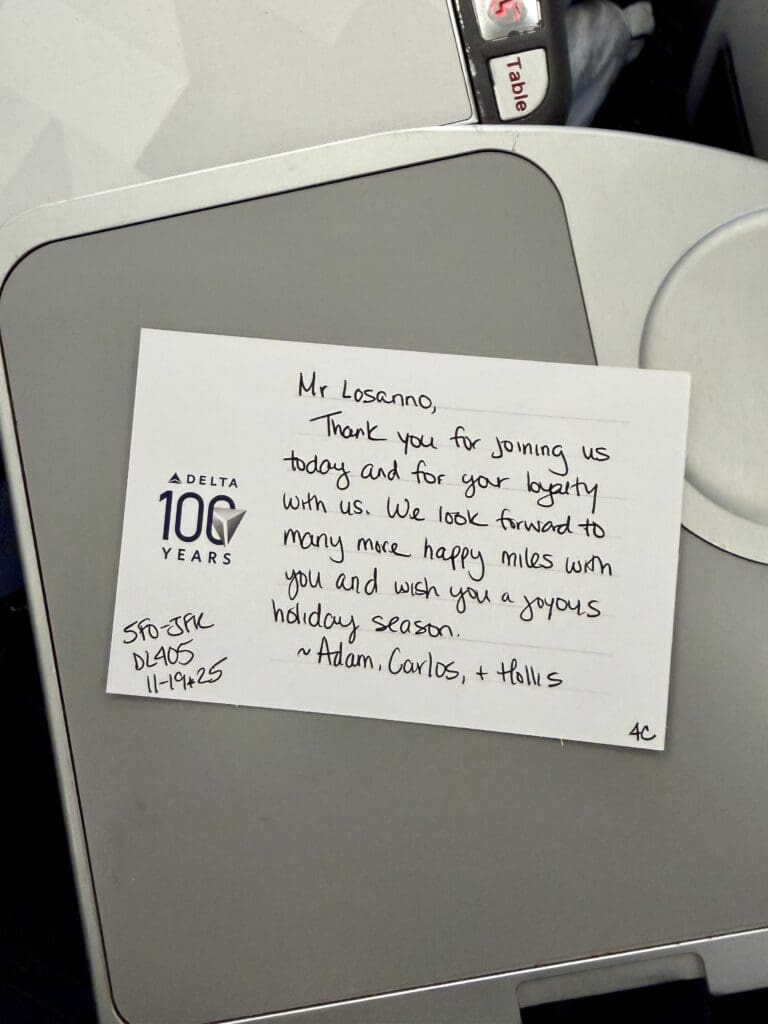 Table
Mr Losanno,
Thank you for joining us
today and for your loyalty
with us. We look forward to
many more happy miles with
you and wish you a joyous
holiday season.
~ Adam, Carlos, + Hollis
DELTA
100
YEARS
SFO-JFK
DL405
11-19*25
4C